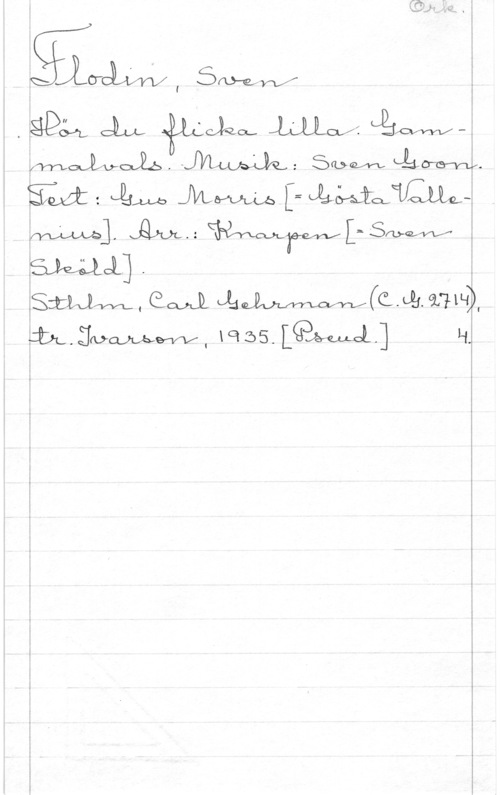 Ork.
Flodin, Sven
Hör du flicka lilla. Gam-
malvals. Musik: Sven Goon.
Text: Gus Morris [= Gösta Valle-
nius]. Arr.: Knarpen [= Sven
Sköld].
Sthlm, Carl Gehrman (C.G. 2714),
tr. Ivarson, 1935. [Pseud.] 4.